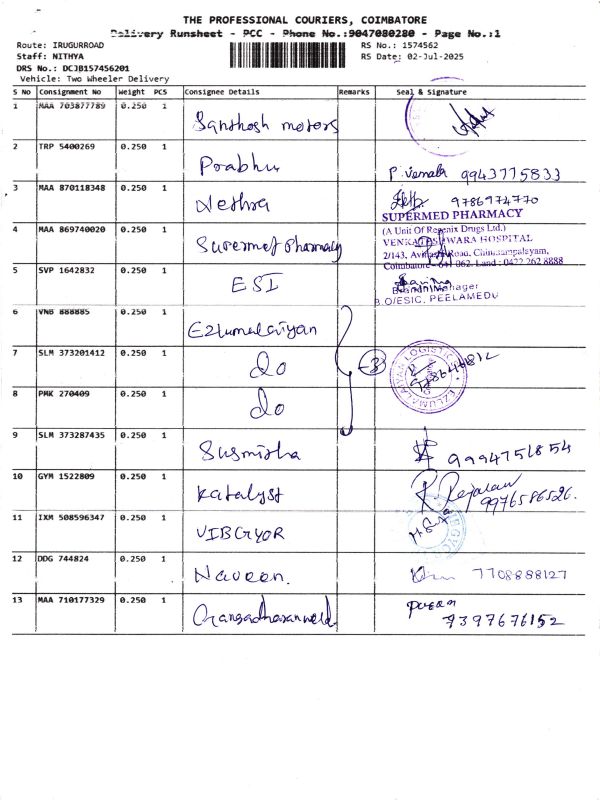 THE PROFESSIONAL COURIERS, COIMBATORE
Delivery Runsheet - PCC - Phone No.:9047080280 - Page No.:1
Route: IRUGURROAD RS No.: 1574562
Staff: NITHYA RS Date: 02-Jul-2025
DRS No.: DCJB157456201
Vehicle: Two Wheeler Delivery
S No Consignment No Weight PCS Consignee Details Remarks Seal & Signature
1 MAA 703877789 0.250 1 Santhosh motors
2 TRP 5400269 0.250 1 Prabhu P. Vemala 9943775833
3 MAA 870118348 0.250 1 Nethra 9786974770
SUPERMED PHARMACY
4 MAA 869740020 0.250 1 Suremet pharmacy (A Unit Of Regenix Drugs Ltd.)
VENKATESHWARA HOSPITAL
2/143, Avinashi Road, Chinniampalayam,
Coimbatore - 641 062. Land : 0422 262 8888
5 SVP 1642832 0.250 1 ESI
Branch Manager
B.O/ESIC, PEELAMEDU
6 VNB 888885 0.250 1 Ezlumalaiyan
7 SLM 373201412 0.250 1 do 3 EZLUMALAIYAN LOGISTIC
8 PMK 270409 0.250 1 do
9 SLM 373287435 0.250 1 Susmitha 9994751854
10 GYM 1522809 0.250 1 Katalyst R. Rejalan 9976586526.
11 IXM 508596347 0.250 1 VIBGYOR
12 DDG 744824 0.250 1 Naveen. 7708888127
13 MAA 710177329 0.250 1 Gangadharanweld. 9397676152